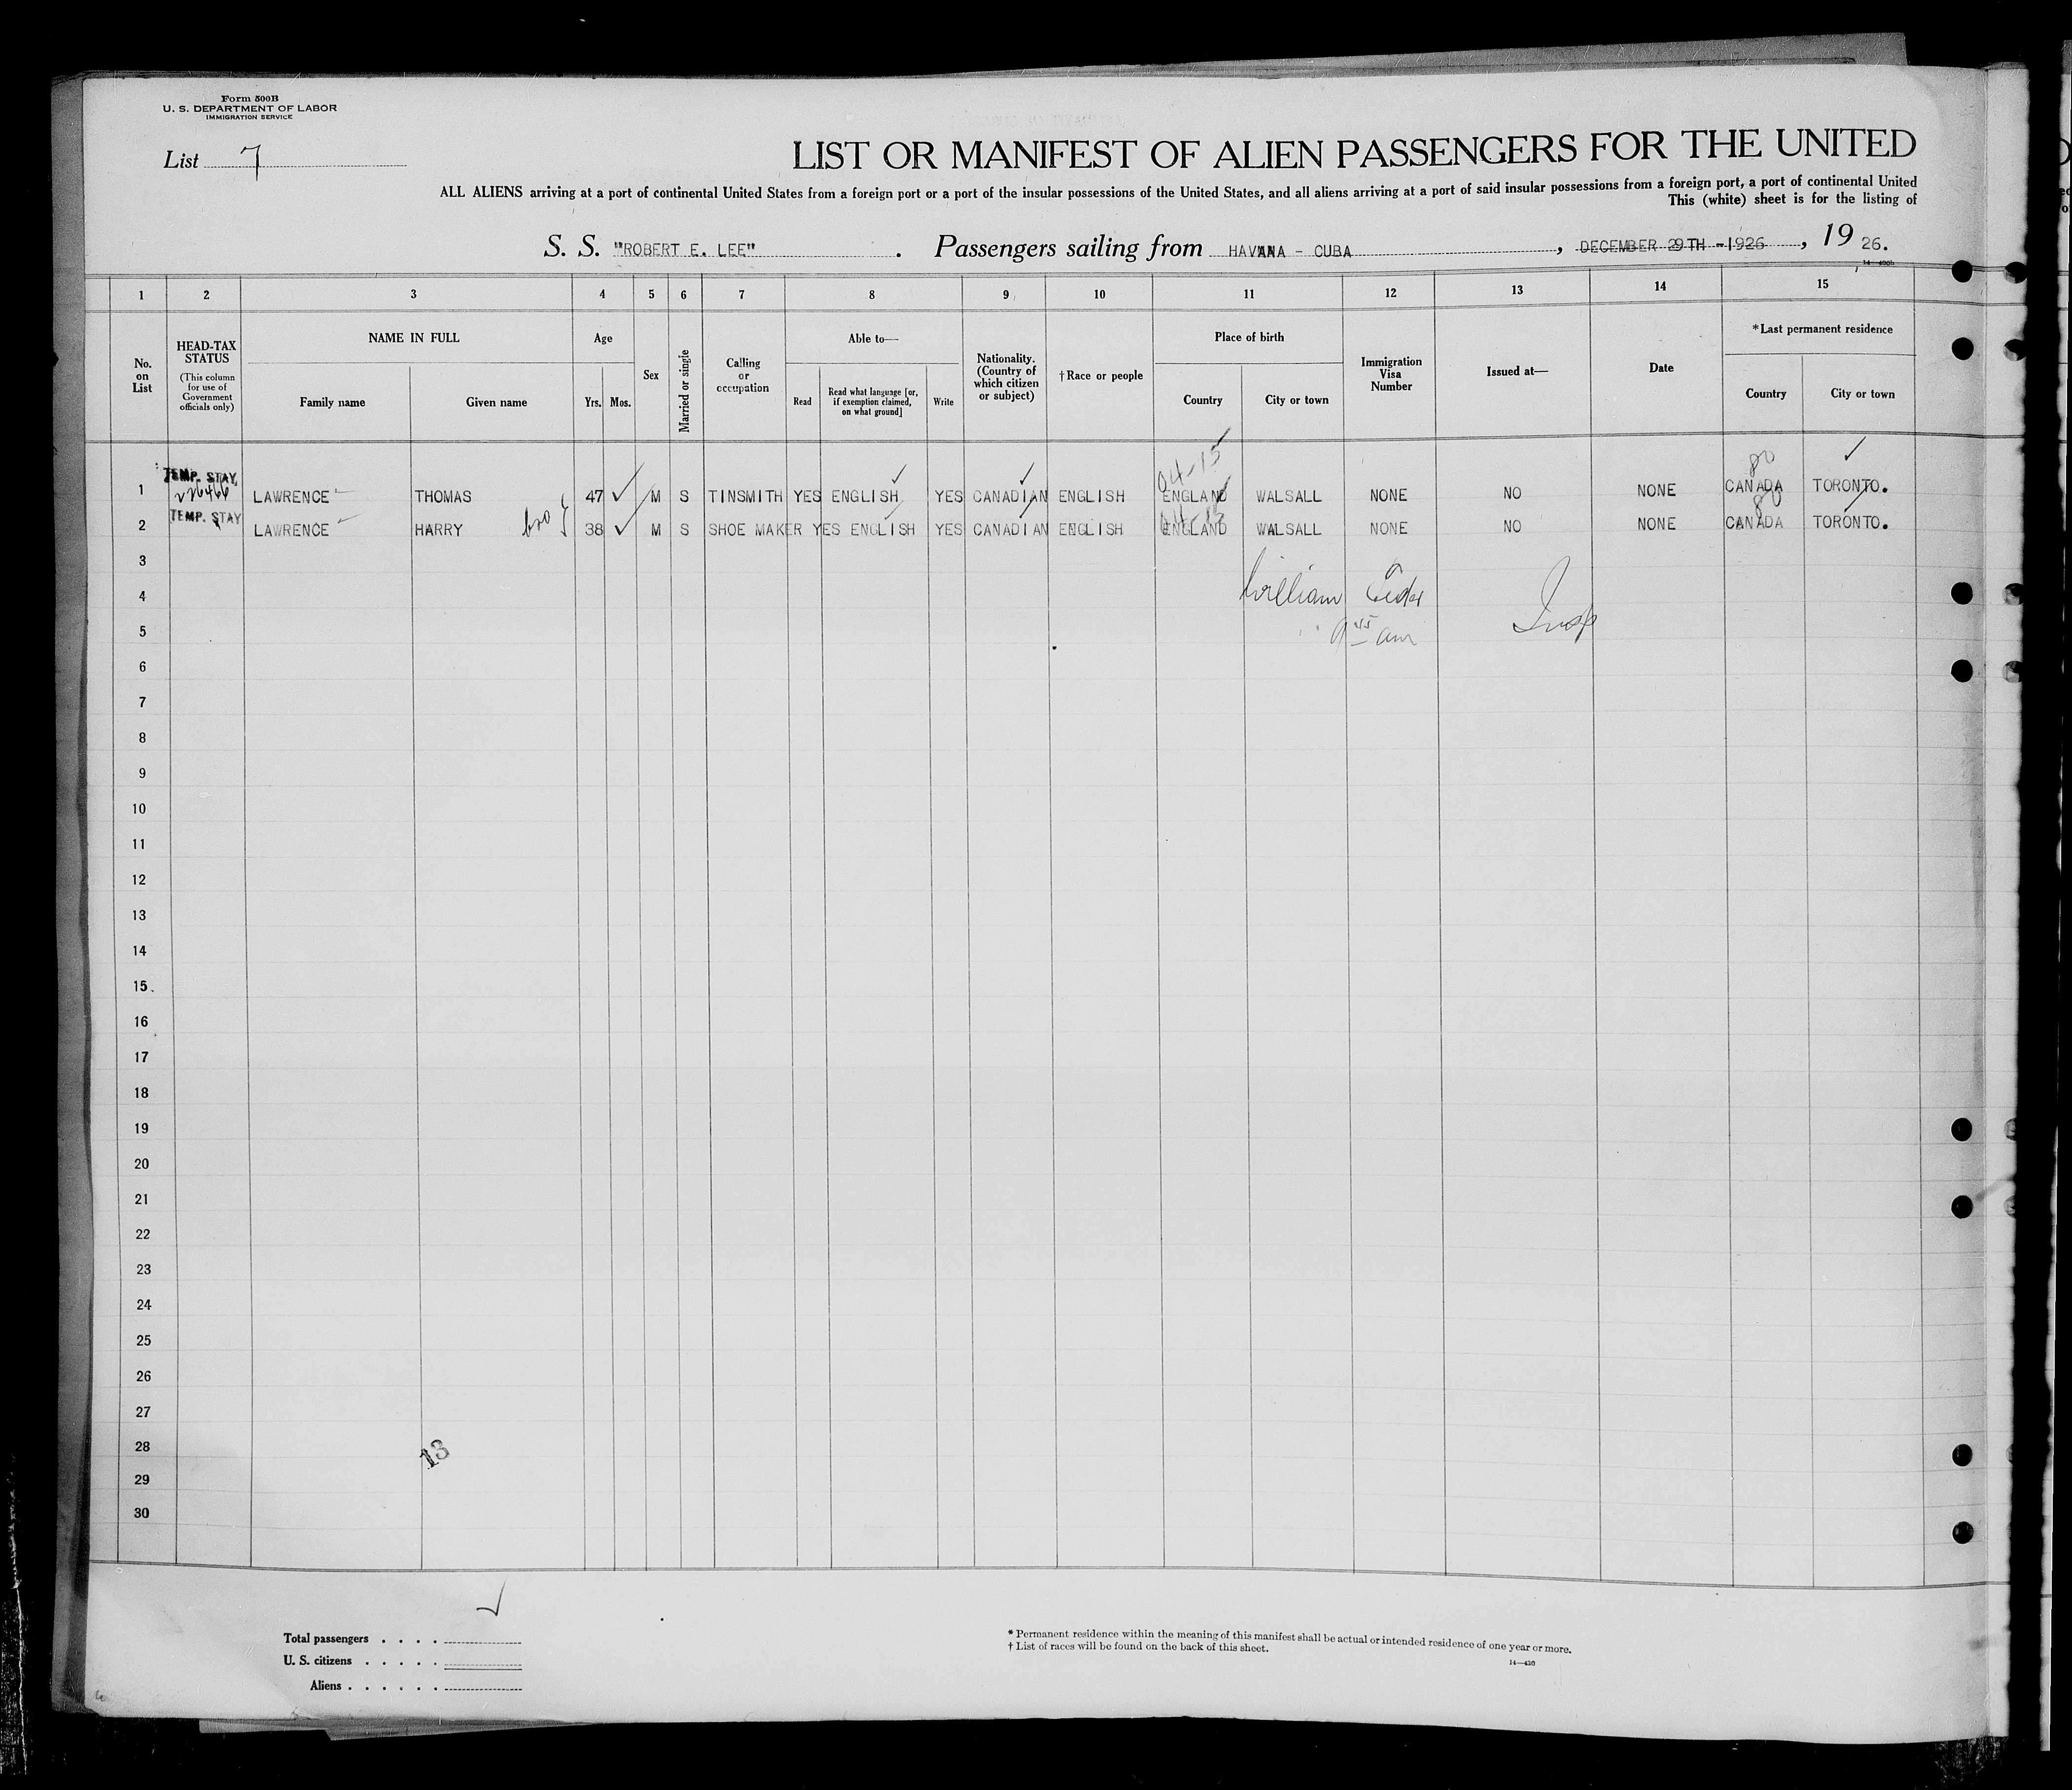 Form 500B
U. S. DEPARTMENT OF LABOR
IMMIGRATION SERVICE
List 7
LIST OR MANIFEST OF ALIEN PASSENGERS FOR THE UNITED
ALL ALIENS arriving at a port of continental United States from a foreign port or a port of the insular possessions of the United States, and all aliens arriving at a port of said insular possessions from a foreign port, a port of continental United
This (white) sheet is for the listing of
S. S. "ROBERT E. LEE". Passengers sailing from HAVANA - CUBA, DECEMBER 29TH -1926, 19 26.
1 2 3 4 5 6 7 8 9 10 11 12 13 14 15
No. on List
HEAD-TAX STATUS (This column for use of Government officials only)
NAME IN FULL
Family name Given name
Age
Yrs. Mos.
Sex
Married or single
Calling or occupation
Able to—
Read Read what language [or, if exemption claimed, on what ground] Write
Nationality. (Country of which citizen or subject)
†Race or people
Place of birth
Country City or town
Immigration Visa Number
Issued at—
Date
*Last permanent residence
Country City or town
04-15 80
TEMP. STAY
226466
1 LAWRENCE THOMAS 47 M S TINSMITH YES ENGLISH YES CANADIAN ENGLISH ENGLAND WALSALL NONE NO NONE CANADA TORONTO.
TEMP. STAY 04-15 80
2 LAWRENCE HARRY bro 38 M S SHOE MAKER YES ENGLISH YES CANADIAN ENGLISH ENGLAND WALSALL NONE NO NONE CANADA TORONTO.
3
4 William
5 9 55 am Insp
6
7
8
9
10
11
12
13
14
15
16
17
18
19
20
21
22
23
24
25
26
27
28 13
29
30
Total passengers . . . .
U. S. citizens . . . . .
Aliens . . . . . .
* Permanent residence within the meaning of this manifest shall be actual or intended residence of one year or more.
† List of races will be found on the back of this sheet.